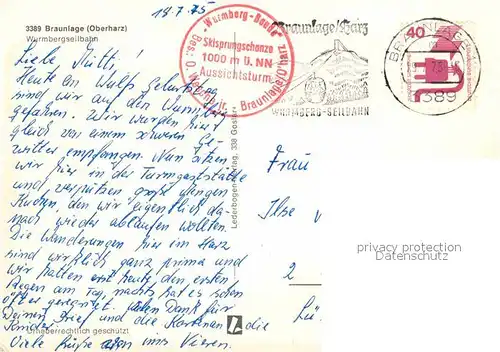 18.7.75
3389 Braunlage (Oberharz)
Wurmbergseilbahn
Liebe Mutti!
Heute an Wulfs Geburtstag
gefahren. Wir wurden hier
gleich von einem schweren Ge-
witter empfangen. Nun sitzen
wir hier in der Turmgaststätte
und verputzen große Mengen
Kuchen, den wir eigentlich da-
nach wieder ablaufen wollten.
Die Wanderungen hier im Harz
sind wirklich ganz prima und
wir hatten erst heute den ersten
Regen am Tag, nachts hat es schon
öfter geregnet. Vielen Dank für
Deinen Brief und die Karten an die
Kinder.
Urheberrechtlich geschützt
Viele Grüße von uns Vieren.
"Wurmberg-Baude"
Skisprungschanze
1000 m ü. NN
Aussichtsturm
Braunlage/O'harz
Braunlage/Harz
WURMBERG-SEILBAHN
40
BRAUNLAGE
3389
Lederbogen-Verlag, 338 Goslar
Frau
Ilse
2
Lü
privacy protection
Datenschutz